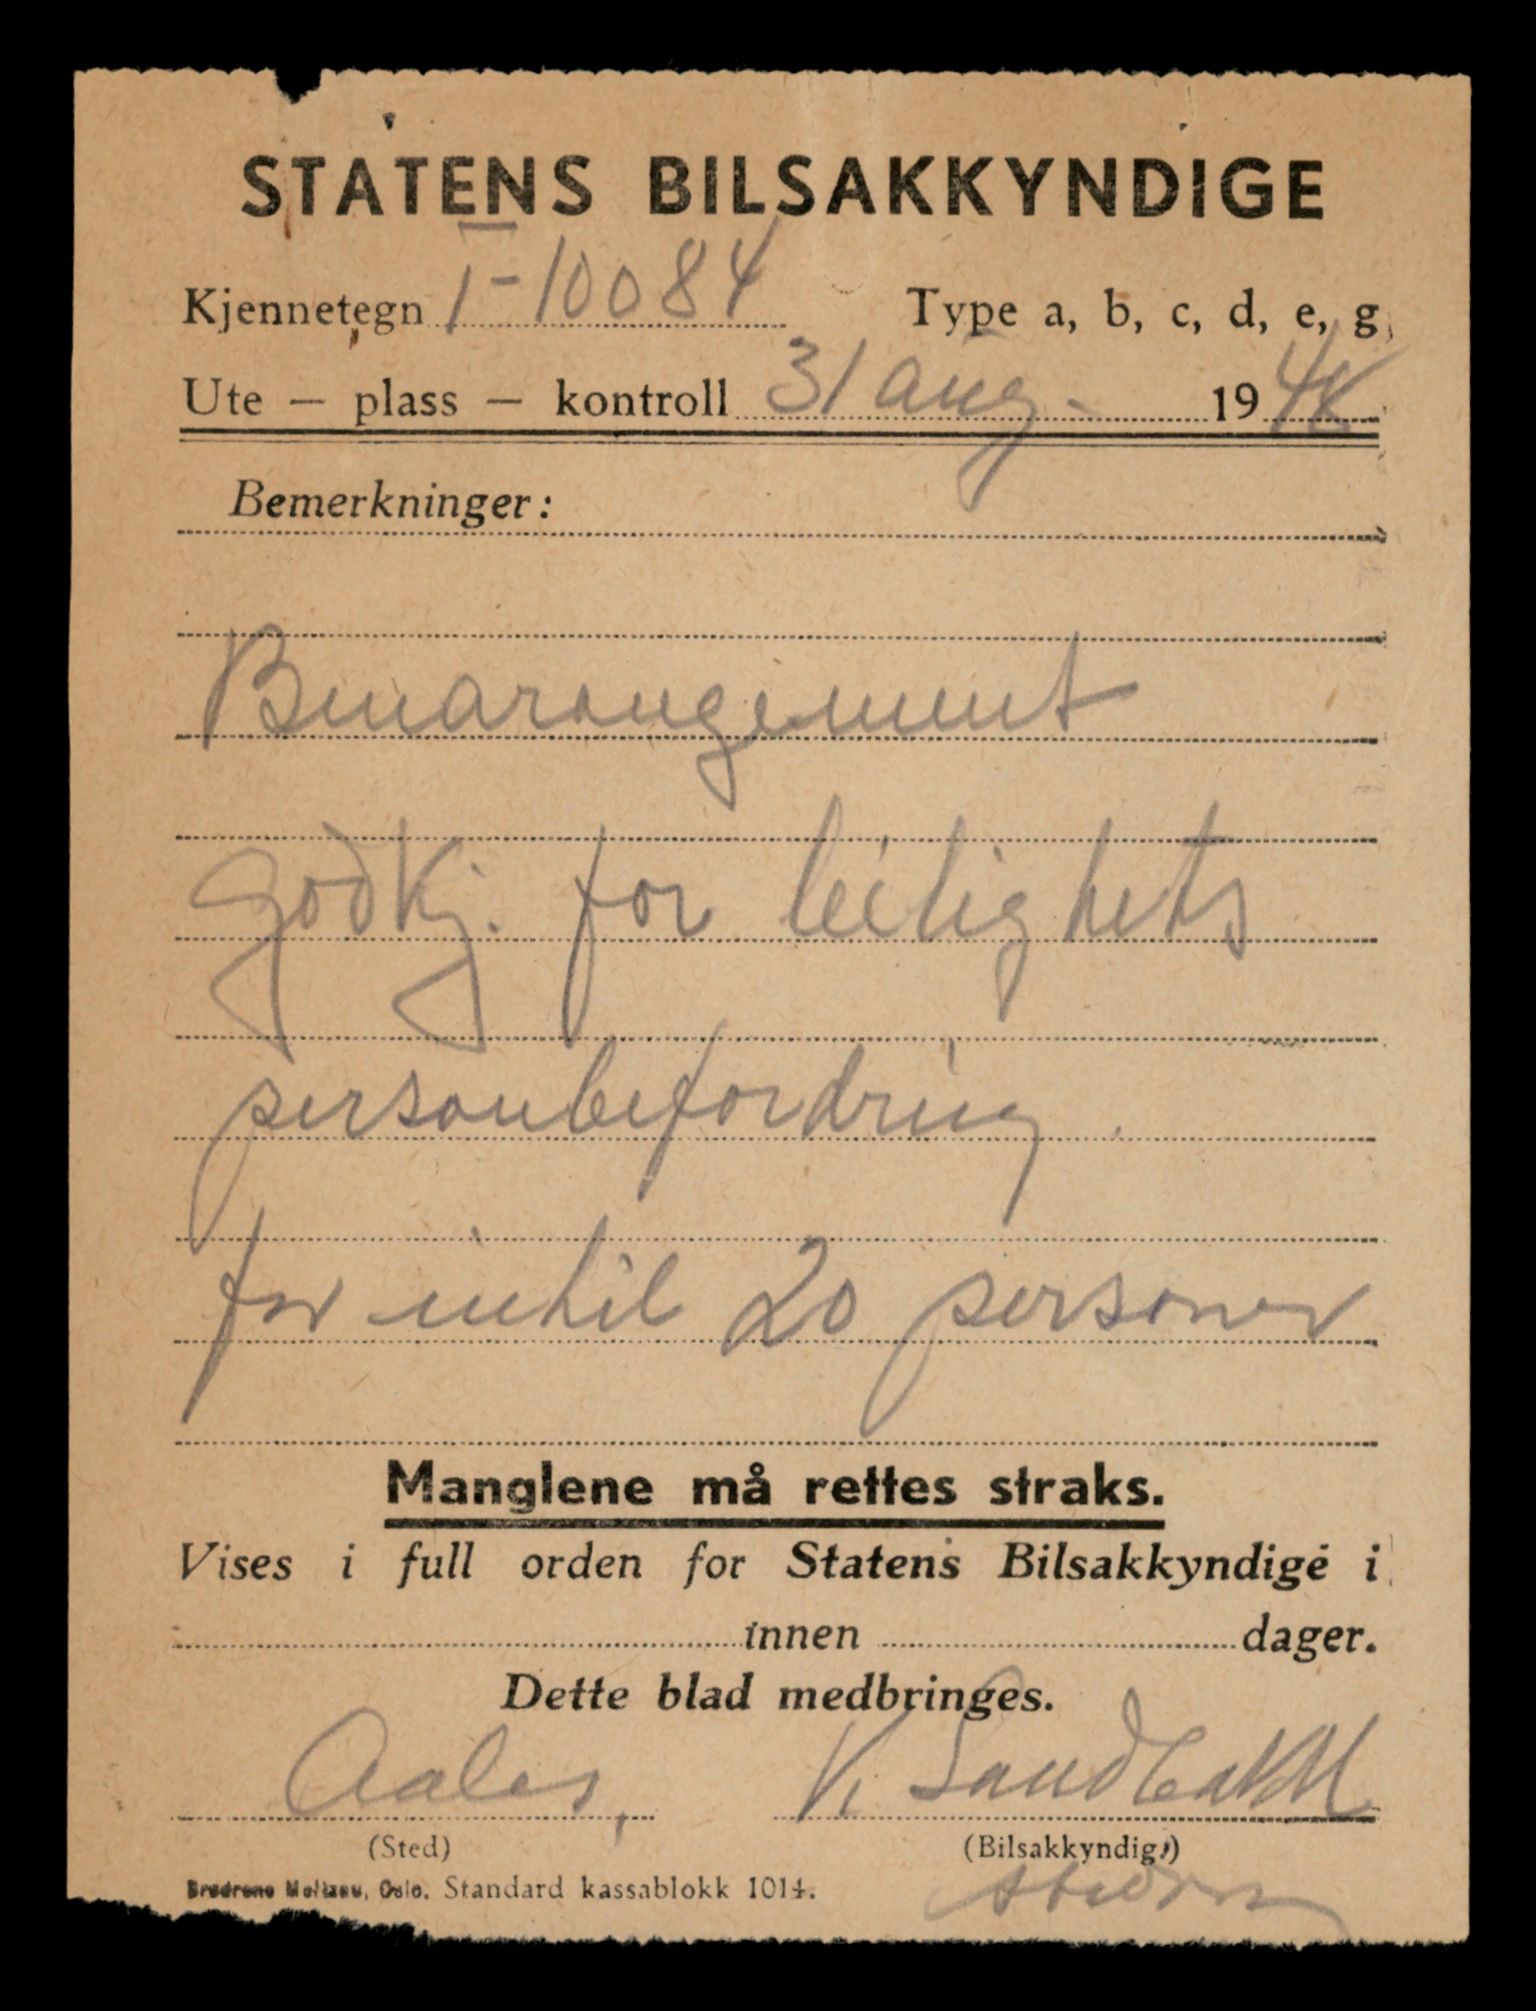 STATENS BILSAKKYNDIGE
Kjennetegn T-10084 Type a, b, c, d, e, g,
Ute — plass — kontroll 31 aug. 1948
Bemerkninger:
godkj. for leilighets
personbefordring
for inntil 20 personer
Manglene må rettes straks.
Vises i full orden for Statens Bilsakkyndige i
innen dager.
Dette blad medbringes.
Aales, K. Sandbakk
(Sted) (Bilsakkyndig)
Brødrene Moltzau, Oslo. Standard kassablokk 1014.